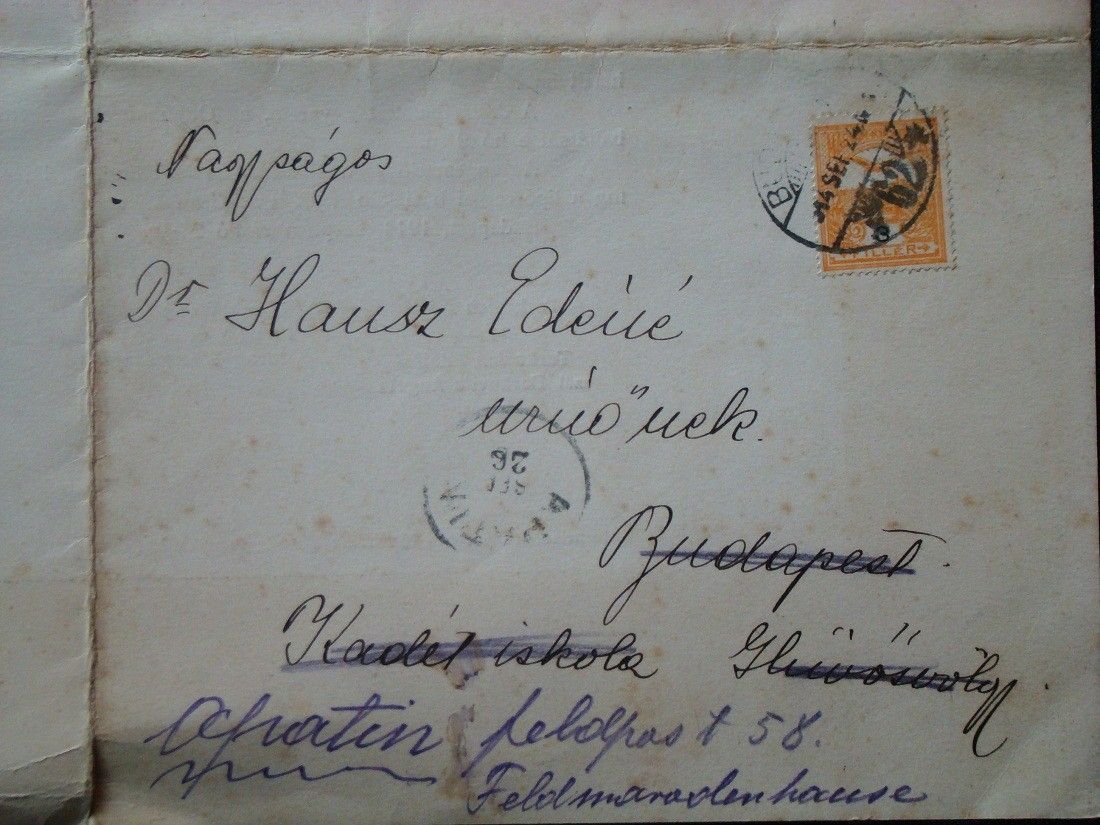 Nagyságos
Dr Hausz Edéné
úrnőnek.
Budapest.
Kadét iskola Hűvösvölgy
Apatin feldpost 58.
Feldmarodenhause
914 SEP 24
62
2 FILLÉR
APATIN
26